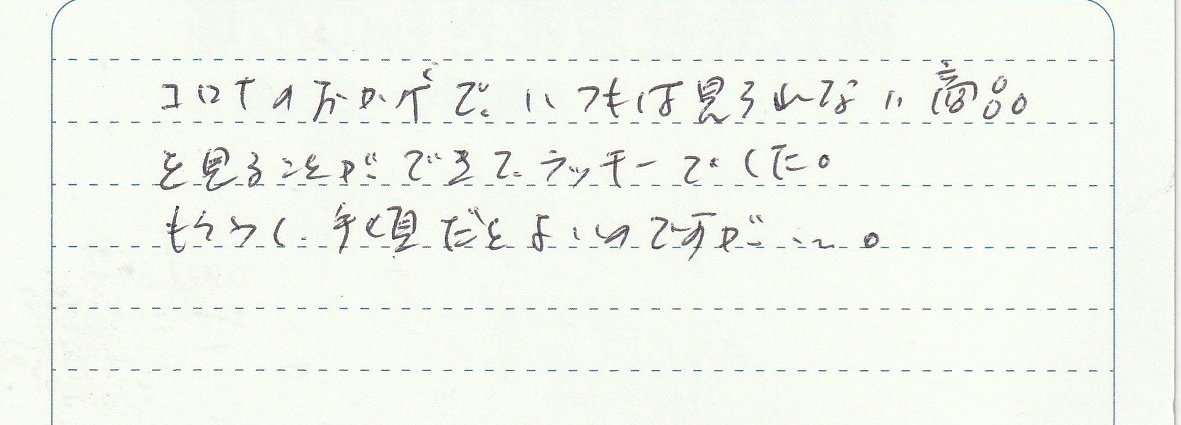 コロナのおかげで、いつもは見られない商品
を見ることができて、ラッキーでした。
もう少し、手頃だとよいのですが…。